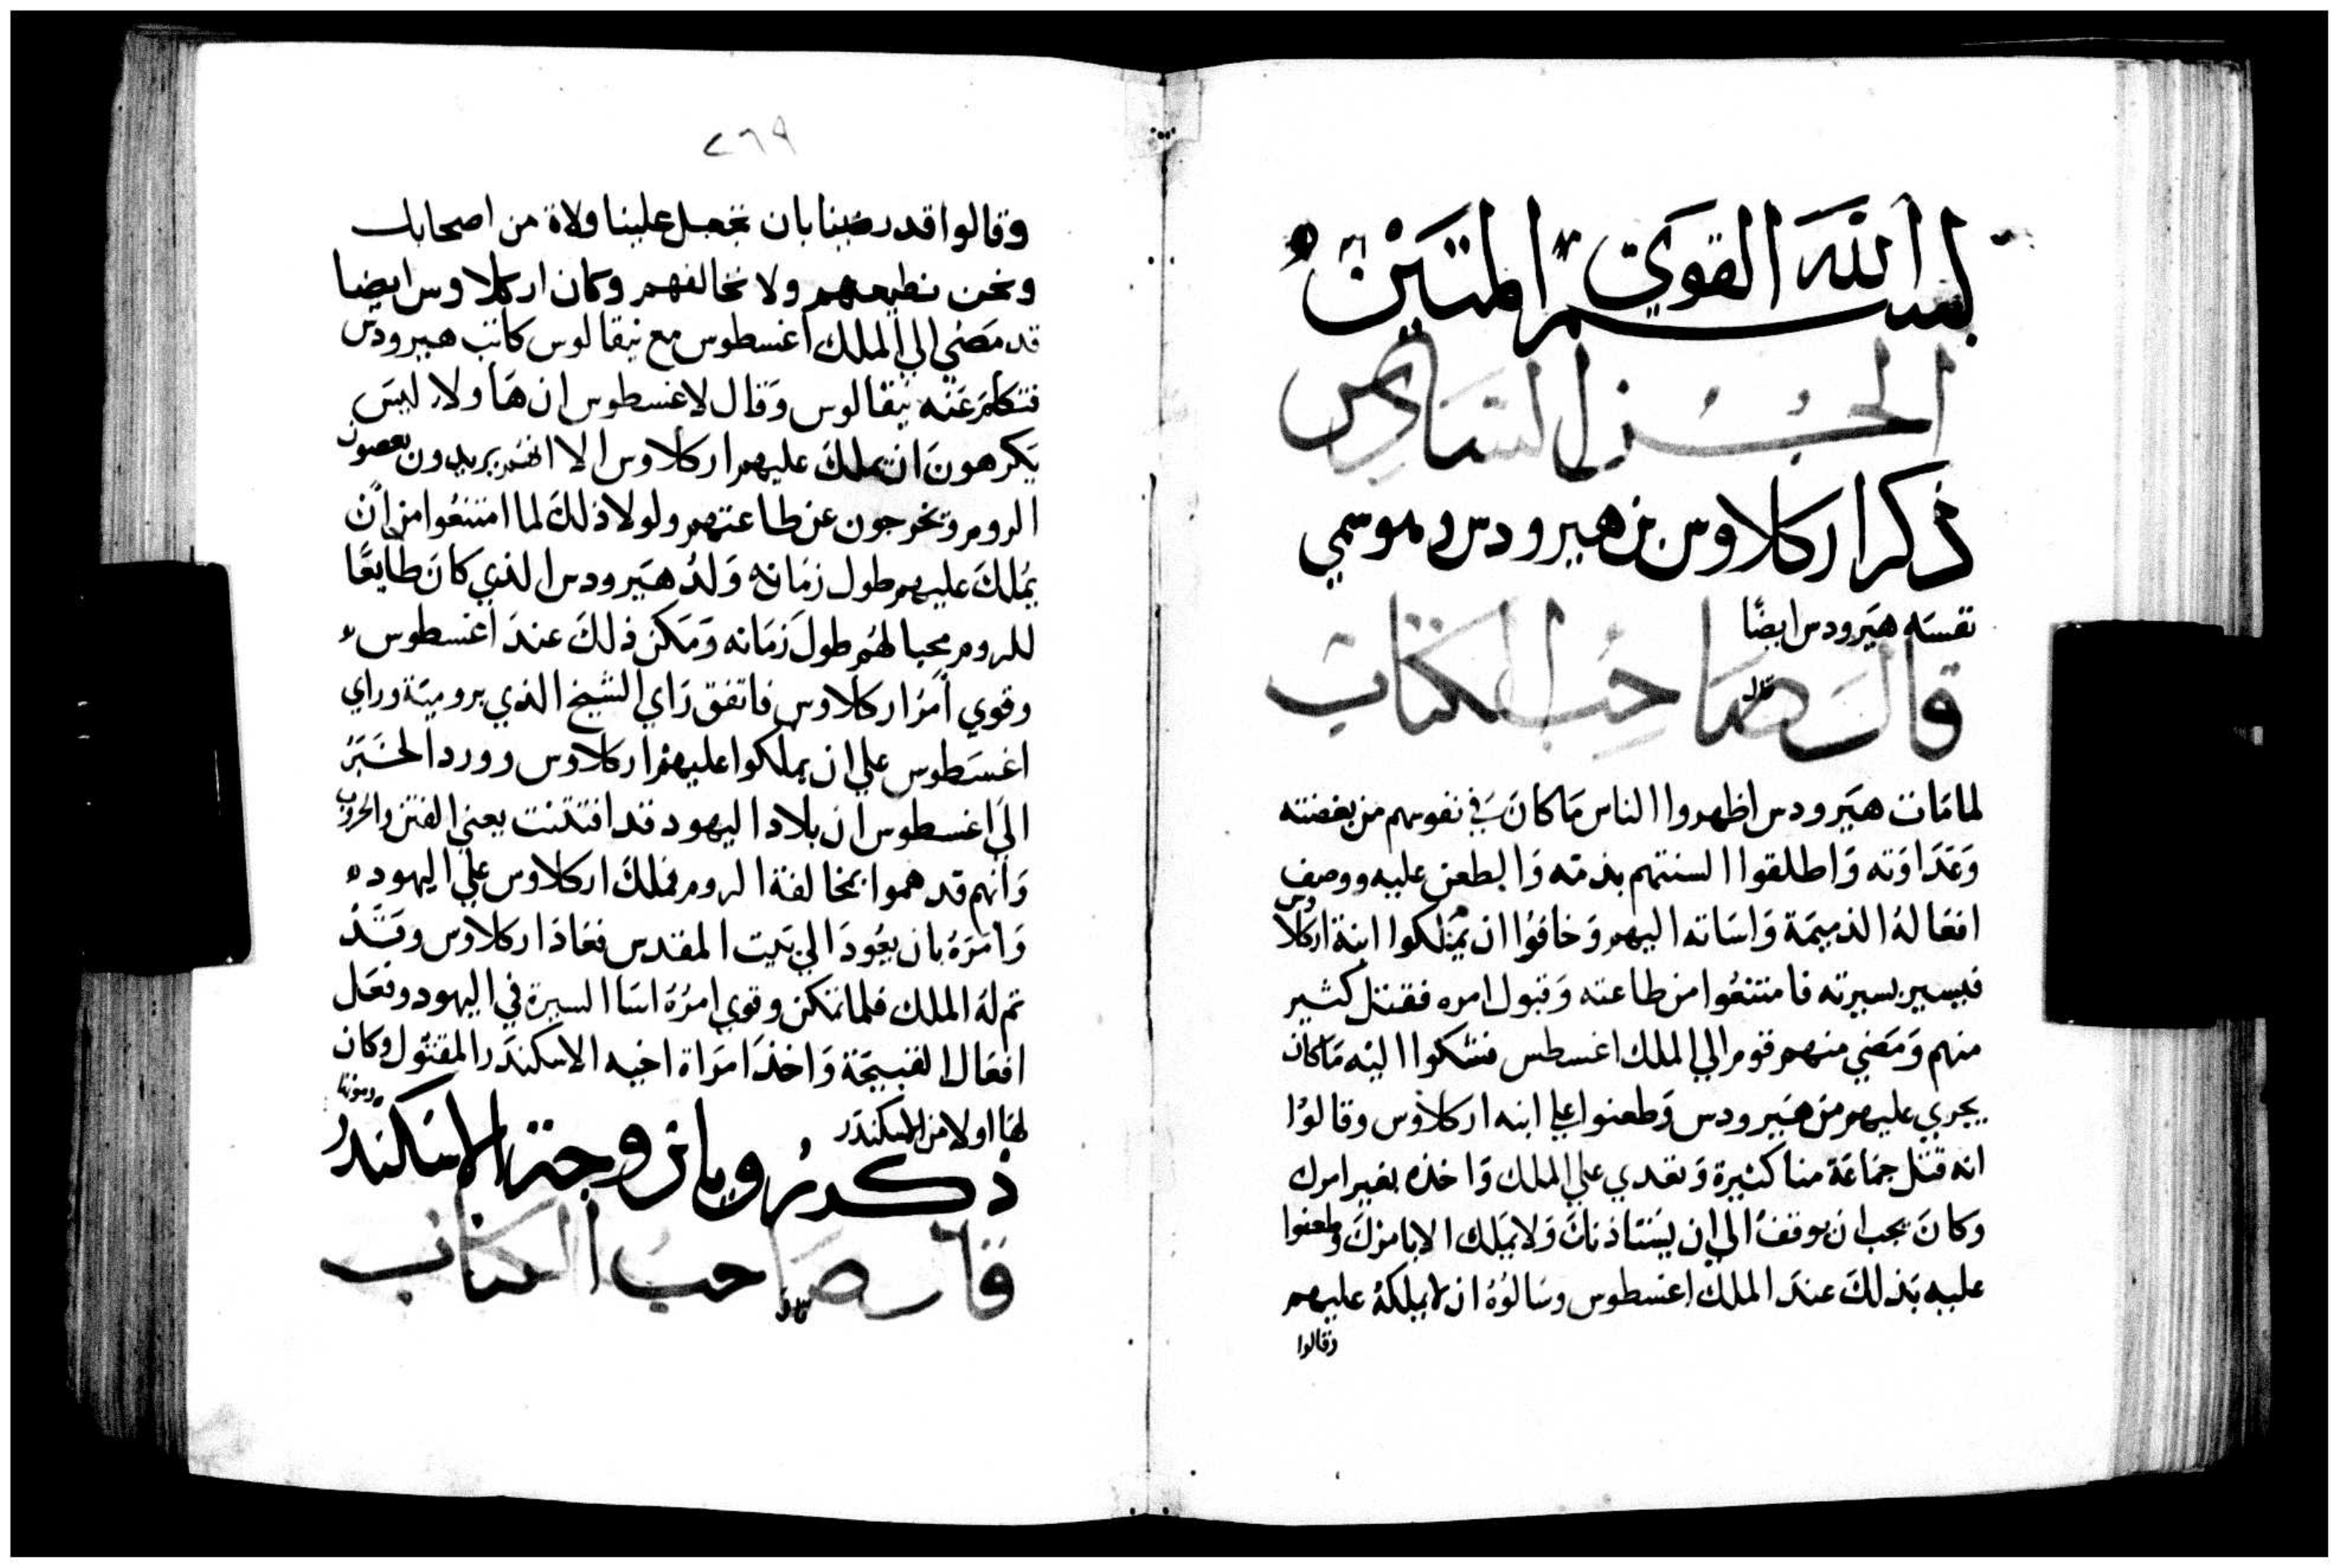 بسم الله القوي المتين
الجزو السادس
ذكر اركلاوس بن هيرودس وهو سمي
نفسه هيرودس ايضًا
قال صاحب الكتاب
قال
لما مات هيرودس اظهروا الناس ما كان في نفوسهم من بغضته
وعداوته واطلقوا السنتهم بذمه وا لطعن عليه ووصف
افعاله الذميمة واساته اليهم وخافوا ان يملكوا ابنه اركلاوس
فيسير بسيرته فامتنعوا من طاعته وقبول امره فقتل كثير
منهم ومضي منهم قوم الي الملك اغسطس فشكوا اليه ما كان
يجري عليهم من هيرودس وطعنوا علي ابنه اركلاوس وقالوا
انه قتل جماعة منا كثيرة وتعدي علي الملك واخذه بغير امرك
وكان يجب ان يوقف الي ان يستاذنك ولا يملك الا بامرك وطعنوا
عليه بذلك عند الملك اغسطوس وسالوه ان لا يملكه عليهم
وقالوا
٢٦٩
وقالوا قد رضينا بان تجعل علينا ولاة من اصحابك
ونحن نطيعهم ولا نخالفهم وكان اركلاوس ايضا
قد مضي الي الملك اغسطوس مع نيقالوس كاتب هيرودس
فتكلم عنه نيقالوس وقال لاغسطوس ان هاولاء ليس
يكرهون ان يملك عليهم اركلاوس الا انهم يريدون يعصون
الروم وتخرجون عن طاعتهم ولولا ذلك لما امتنعوا من ان
يملك عليهم طول زمانه ولد هيرودس الذي كان طايعًا
للروم محبا لهم طول زمانه ومكن ذلك عند اغسطوس
وقوي امر اركلاوس فاتفق راي الشيخ الذي برومية وراي
اغسطوس علي ان يملكوا عليهم اركلاوس وورد الخبر
الي اغسطوس ان بلاد اليهود قد افتتنت يعني الفتن والحروب
وانهم قد هموا بمخالفة الروم فملك اركلاوس علي اليهود
وامره بان يعود الي بيت المقدس فعاد اركلاوس وقد
تم له الملك فلما تمكن وقوي امره اسا السيرة في اليهود وفعل
افعال القبيحة واخذ امراة اخيه الاسكندر المقتول وكان
لها اولاد من الاسكندر
ذكر رويا زوجة الاسكندر وموتها
قال صاحب الكتاب
قال